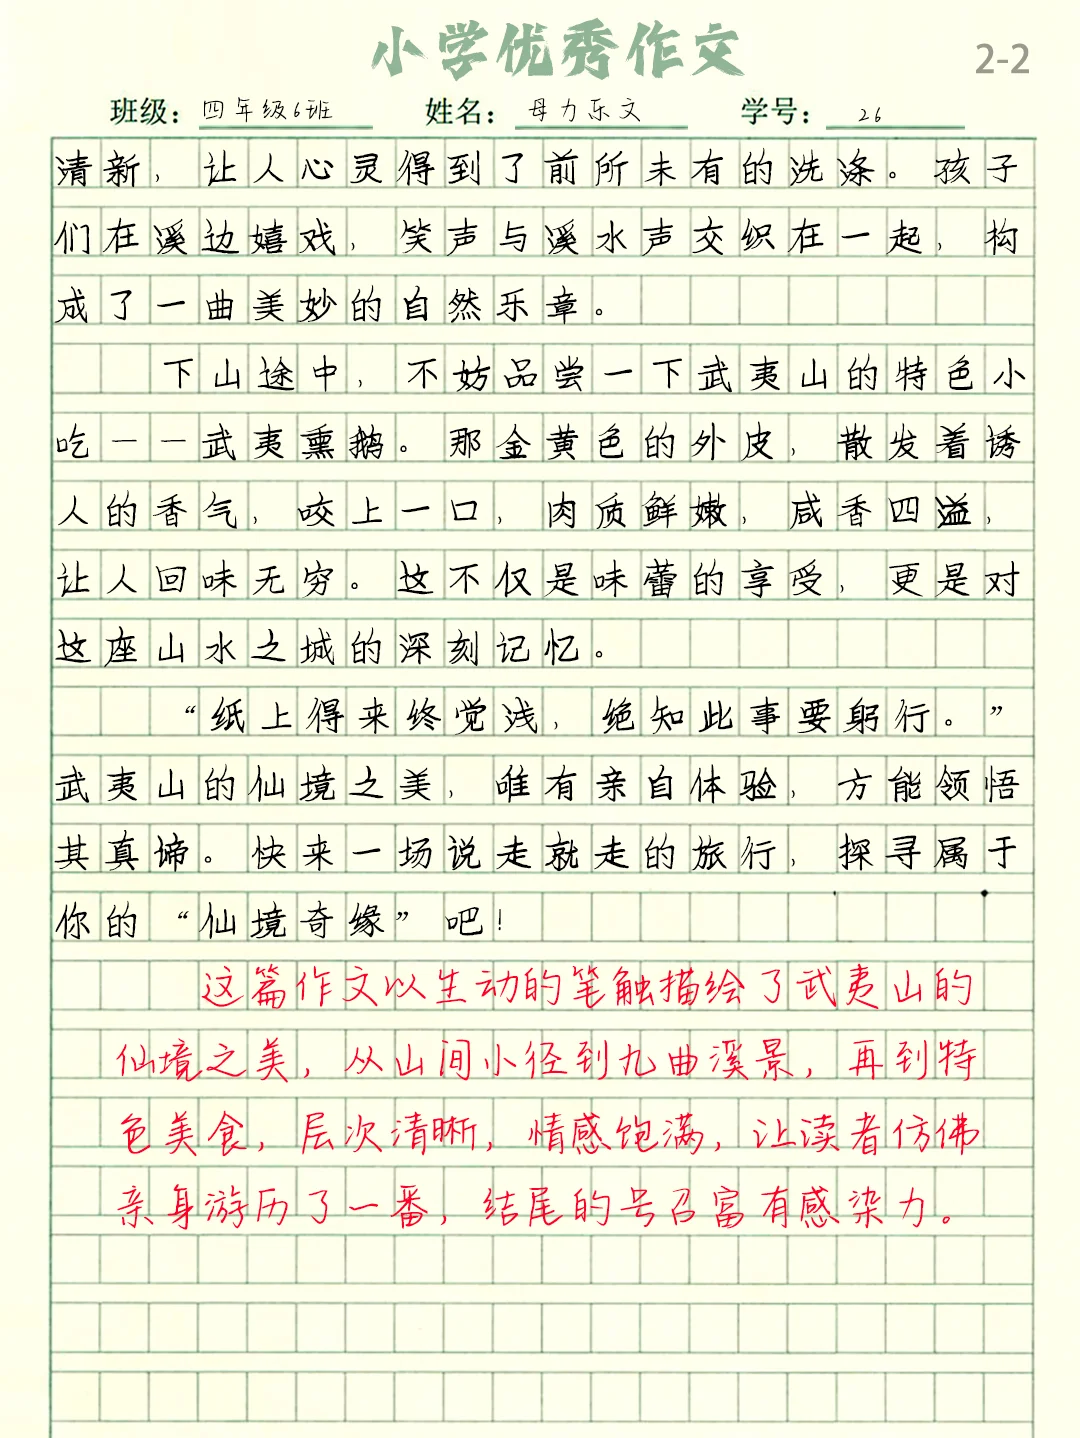 小学优秀作文
2-2
班级：四年级6班 姓名：母力乐文 学号：26
清新，让人心灵得到了前所未有的洗涤。孩子
们在溪边嬉戏，笑声与溪水声交织在一起，构
成了一曲美妙的自然乐章。
下山途中，不妨品尝一下武夷山的特色小
吃——武夷熏鹅。那金黄色的外皮，散发着诱
人的香气，咬上一口，肉质鲜嫩，咸香四溢，
让人回味无穷。这不仅是味蕾的享受，更是对
这座山水之城的深刻记忆。
“纸上得来终觉浅，绝知此事要躬行。”
武夷山的仙境之美，唯有亲自体验，方能领悟
其真谛。快来一场说走就走的旅行，探寻属于
你的“仙境奇缘”吧！
这篇作文以生动的笔触描绘了武夷山的
仙境之美，从山间小径到九曲溪景，再到特
色美食，层次清晰，情感饱满，让读者仿佛
亲身游历了一番，结尾的号召富有感染力。